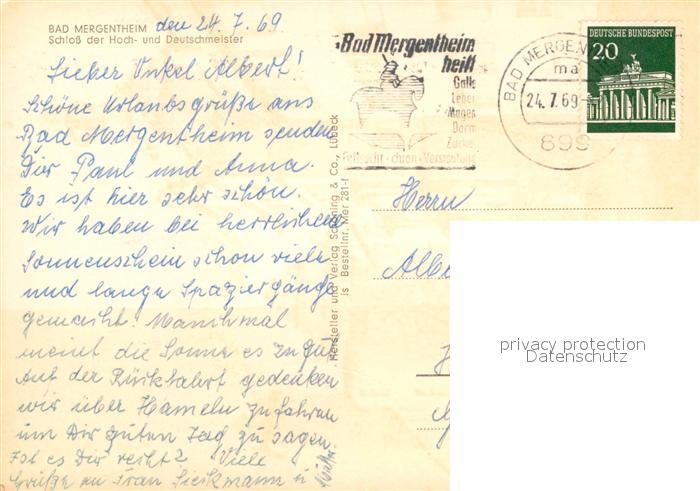 BAD MERGENTHEIM den 24. 7. 69
Schloß der Hoch- und Deutschmeister
Lieber Onkel Albert!
Schöne Urlaubsgrüße aus
Bad Mergentheim senden
Dir Paul und Anna.
Es ist hier sehr schön.
Wir haben bei herrlichem
Sonnenschein schon viele
und lange Spaziergänge
gemacht. Manchmal
meint die Sonne es zu gut.
Auf der Rückfahrt gedenken
wir über Hameln zu fahren
um Dir guten Tag zu sagen.
Ist es Dir recht? Viele
Grüße an Frau
Hersteller und Verlag Schöning & Co., Lübeck
Bestellnr. Mer 281
Bad Mergentheim
heilt
Galle
Leber
Magen
Darm
Zucker
Fettsucht · chron · Verstopfung
BAD MERGEN
24. 7. 69
699
DEUTSCHE BUNDESPOST
20
Herrn
Albe
privacy protection
Datenschutz